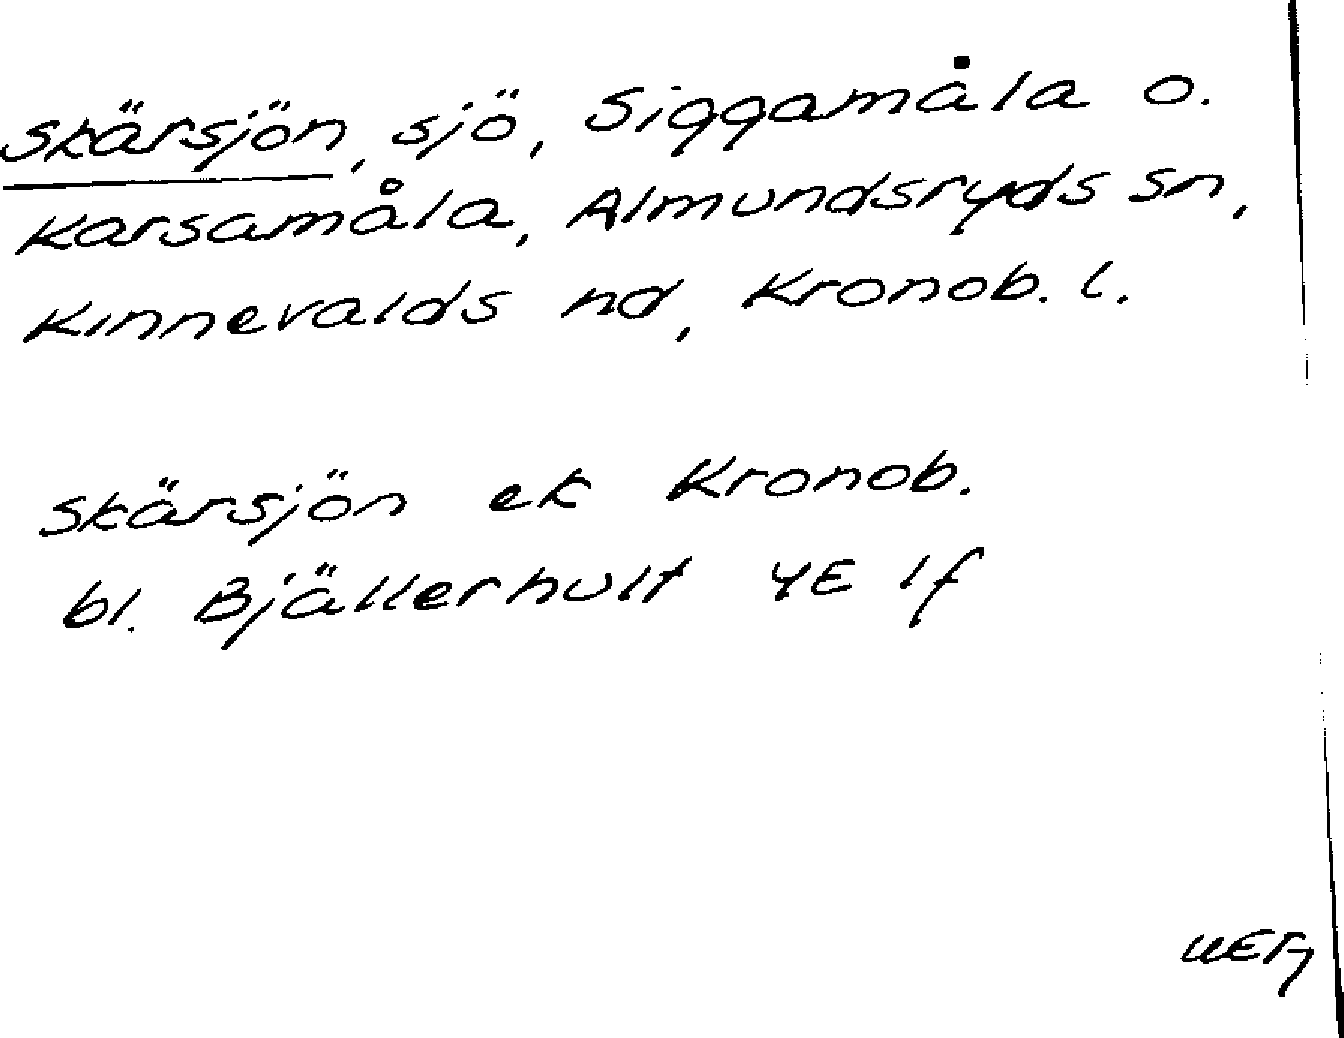 Skärsjön, sjö, Siggamåla o.
Karsamåla, Almundsryds sn,
Kinnevalds hd, Kronob. l.
Skärsjön ek Kronob.
bl. Bjällerhult 4E 1f